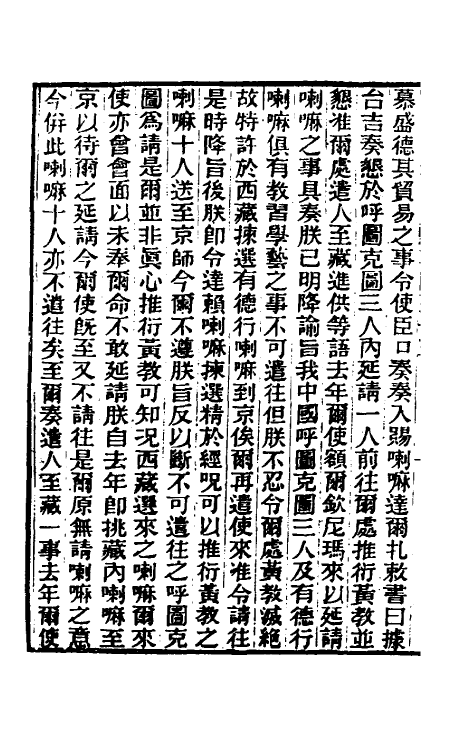 慕盛德其貿易之事令使臣口奏奏入賜喇嘛達爾扎敕書曰據
台吉奏懇於呼圖克圖三人內延請一人前往爾處推衍黃教並
懇准爾處遣人至藏進供等語去年爾使額爾欽尼瑪來以延請
喇嘛之事具奏朕已明降諭旨我中國呼圖克圖三人及有德行
喇嘛俱有教習學藝之事不可遣往但朕不忍令爾處黃教滅絕
故特許於西藏揀選有德行喇嘛到京俟爾再遣使來准令請往
是時降旨後朕卽令達賴喇嘛揀選精於經呪可以推衍黃教之
喇嘛十人送至京師今爾不遵朕旨反以斷不可遣往之呼圖克
圖爲請是爾並非眞心推衍黃教可知况西藏選來之喇嘛爾來
使亦曾會面以未奉爾命不敢延請朕自去年卽挑藏內喇嘛至
京以待爾之延請今爾使旣至又不請往是爾原無請喇嘛之意
今倂此喇嘛十人亦不遣往矣至爾奏遣人至藏一事去年爾使